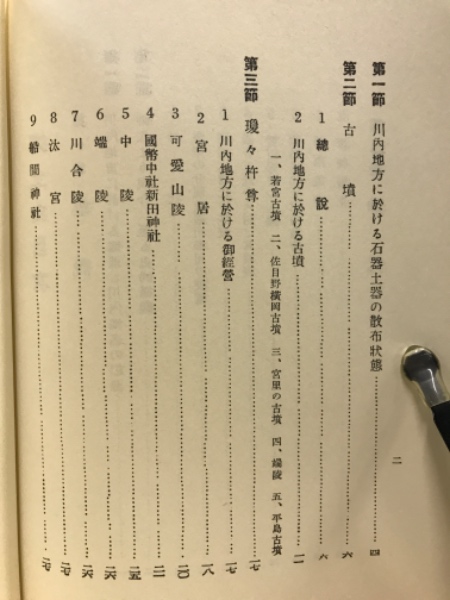 第一節 川內地方に於ける石器土器の散布狀態…………四
第二節 古墳…………六
1 總說…………六
2 川內地方に於ける古墳…………一一
一、若宮古墳 二、佐目野橫岡古墳 三、宮里の古墳 四、端陵 五、平島古墳
第三節 瓊々杵尊…………一七
1 川內地方に於ける御經營…………一七
2 宮居…………一八
3 可愛山陵…………二〇
4 國幣中社新田神社…………二一
5 中陵…………二五
6 端陵…………二六
7 川合陵…………二六
8 汰宮…………二七
9 船間神社…………二七
二